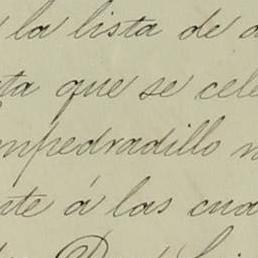 la lista de
ta que se cele
mpedradillo
te á las cua